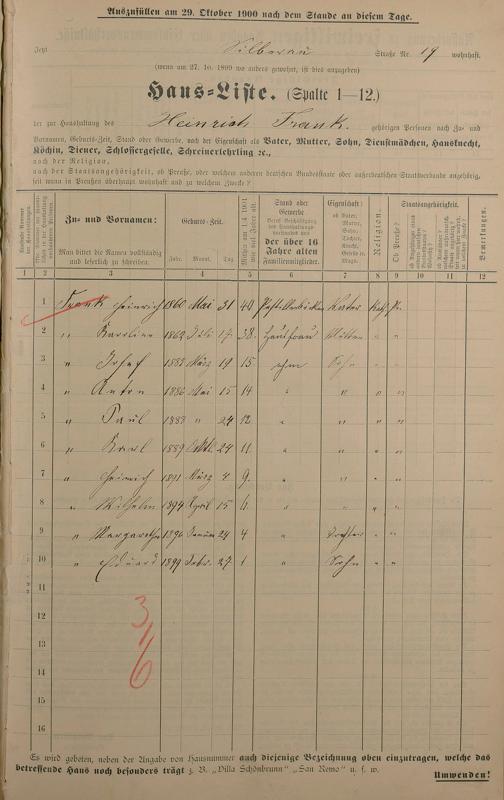 Auszufüllen am 29. Oktober 1900 nach dem Stande an diesem Tage.
Jetzt Silberau Straße Nr. 19 wohnhaft.
(wenn am 27. 10. 1899 wo anders gewohnt, ist dies anzugeben)
Haus-Liste. (Spalte 1—12.)
der zur Haushaltung des Heinrich Frank. gehörigen Personen nach Zu- und
Vornamen, Geburts-Zeit, Stand oder Gewerbe, nach der Eigenschaft als Vater, Mutter, Sohn, Dienstmädchen, Hausknecht,
Köchin, Diener, Schlossergeselle, Schreinerlehrling ꝛc.,
nach der Religion,
nach der Staatsangehörigkeit, ob Preuße, oder welchem anderen deutschen Bundesstaate oder außerdeutschen Staatsverbande angehörig,
seit wann in Preußen überhaupt wohnhaft und zu welchem Zwecke?
Zu- und Vornamen:
Man bittet die Namen vollständig und leserlich zu schreiben.
Geburts-Zeit.
Jahr. Monat. Tag.
Stand oder Gewerbe
der über 16 Jahre alten Familienmitglieder.
Eigenschaft:
ob Vater, Mutter, Sohn, Tochter, Knecht, Geselle ꝛc. Magd.
Religion.
Staatsangehörigkeit.
Ob Preuße?
Bemerkungen.
1 2 3 4 5 6 7 8 9 10 11 12
1 Frank Heinrich 1860 Mai 31 40 Vater Kath. Pr.
2 " Karoline 1862 Juli 17 38. Hausfrau Mutter " "
3 " Josef 1885 März 19 15. ohne Sohn " "
4 " Anton 1886 Mai 15 14 " " " "
5 " Paul 1888 " 24 12. " " " "
6 " Karl 1889 24 11 " " " "
7 " Heinrich 1891 März 4 9. " " " "
8 " Wilhelm 1894 April 15 6. " " " "
9 " Margarethe 1896 Januar 24 4 " Tochter " "
10 " Eduard 1899 Febr. 27. 1 " Sohn " "
11
12
13
14
15
16
3
1
6
Es wird gebeten, neben der Angabe von Hausnummer auch diejenige Bezeichnung oben einzutragen, welche das
betreffende Haus noch besonders trägt z. B. "Villa Schönbrunn" "San Remo" u. s. w. Umwenden!